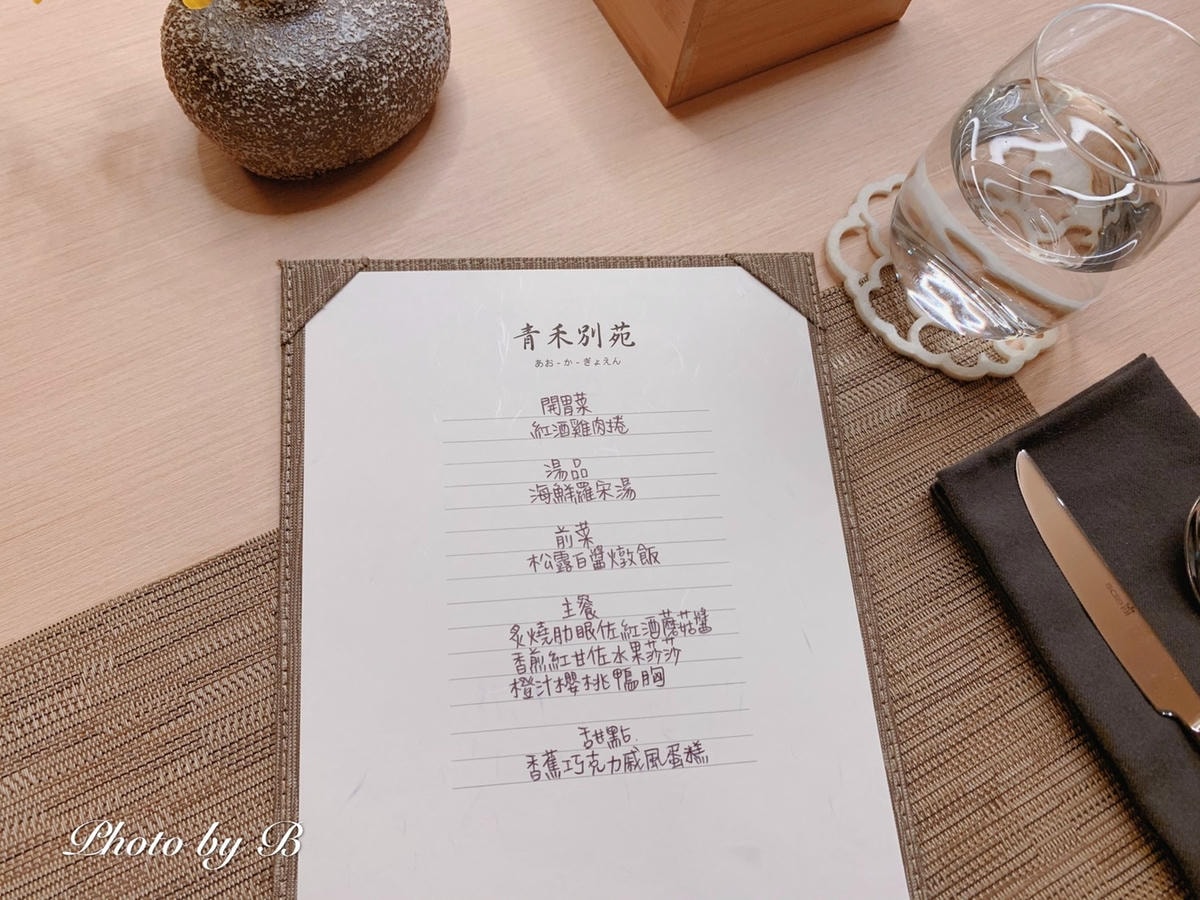 青禾別苑
あお-か-ぎょえん
開胃菜
紅酒雞肉捲
湯品
海鮮羅宋湯
前菜
松露白醬燉飯
主餐
炙燒肋眼佐紅酒蘑菇醬
香煎紅甘佐水果莎莎
橙汁櫻桃鴨胸
甜點
香蕉巧克力戚風蛋糕
Photo by B